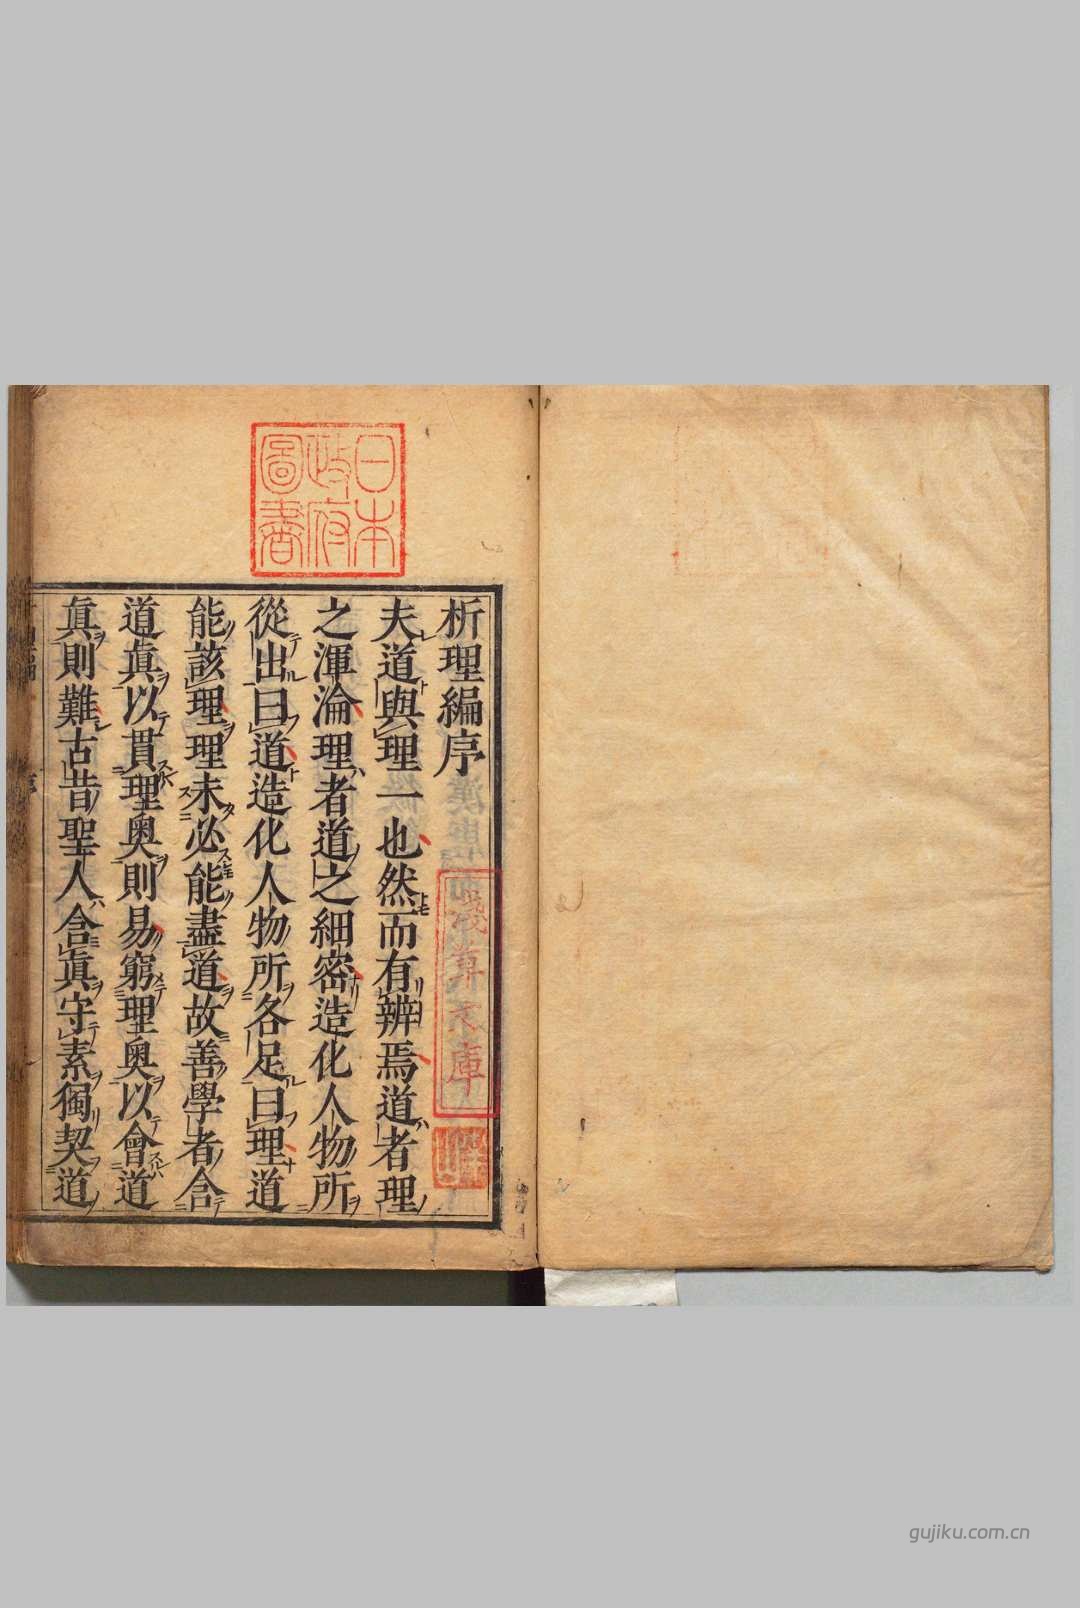 日本
政府
圖書
析理編序
夫道與理一也然而有辨焉道者理
之渾淪理者道之細密造化人物所
從出曰道造化人物所各足曰理道
能該理理未必能盡道故善學者含
道眞以貫理奥則易窮理奥以會道
眞則難古昔聖人含眞守素獨契道
gujiku.com.cn